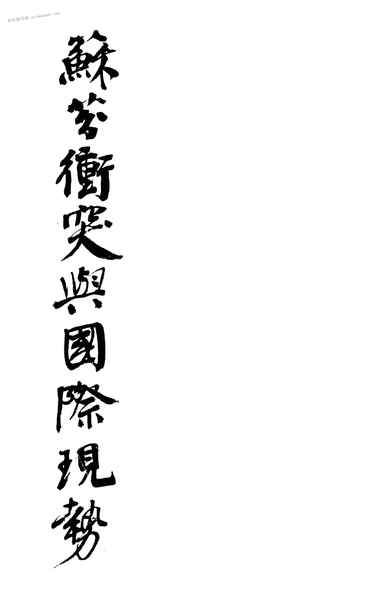 蘇芬衝突與國際現勢